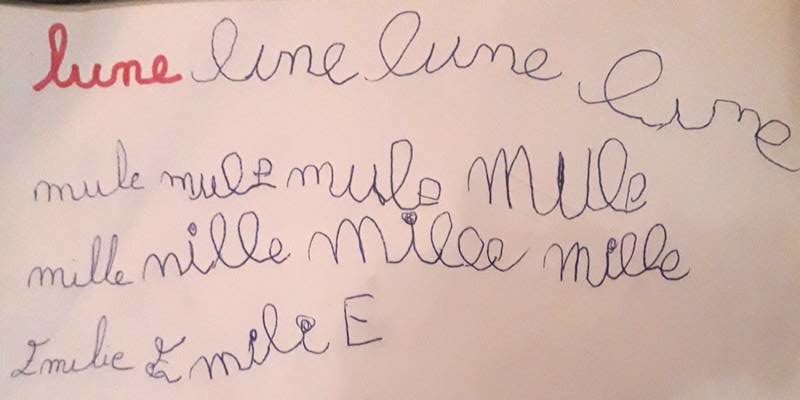 lune line lune lune
mule mule mule mule
mille nille mille mille
Emilie Emilie E